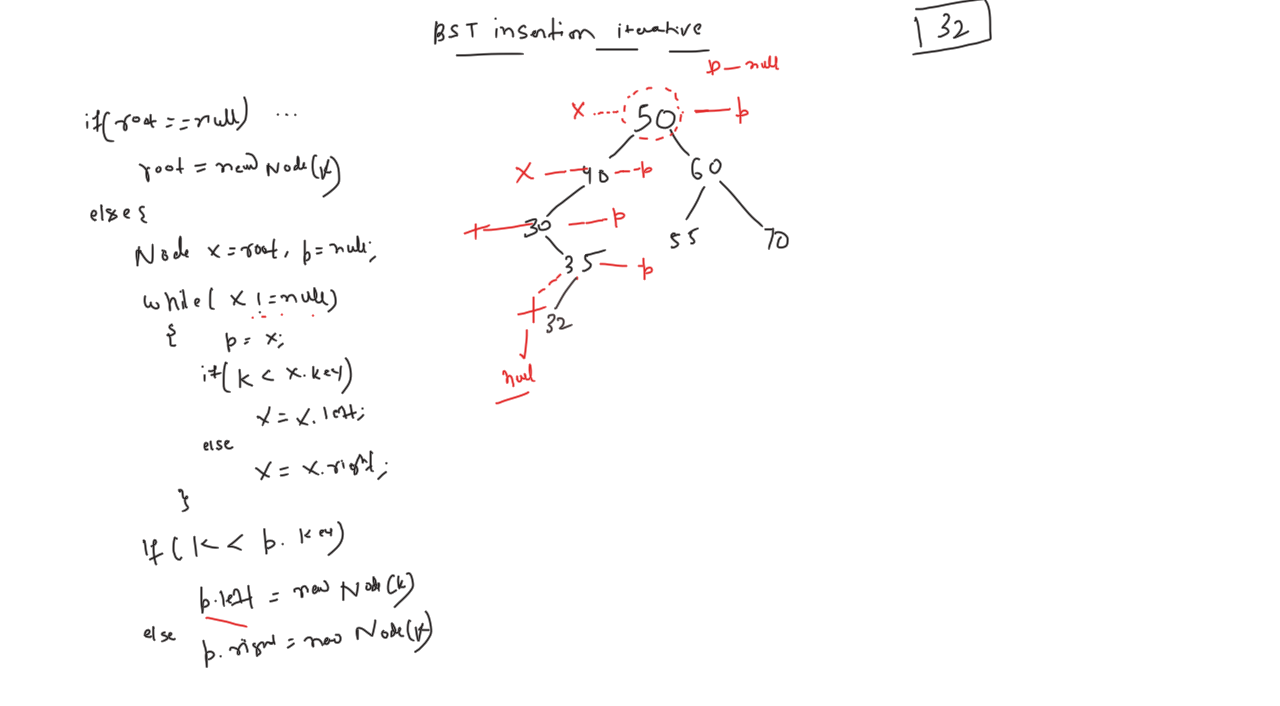 BST insertion iterative
32
if(root==null) ...
root = new Node(k)
else{
Node x=root, p=null;
while( x !=null)
{ p = x;
if(k < x.key)
x = x.left;
else
x = x.right;
}
If(k < p.key)
p.left = new Node(k)
else p.right = new Node(k)
p—null
x 50 p
x 40 p 60
x 30 p 55 70
35 p
x 32
null